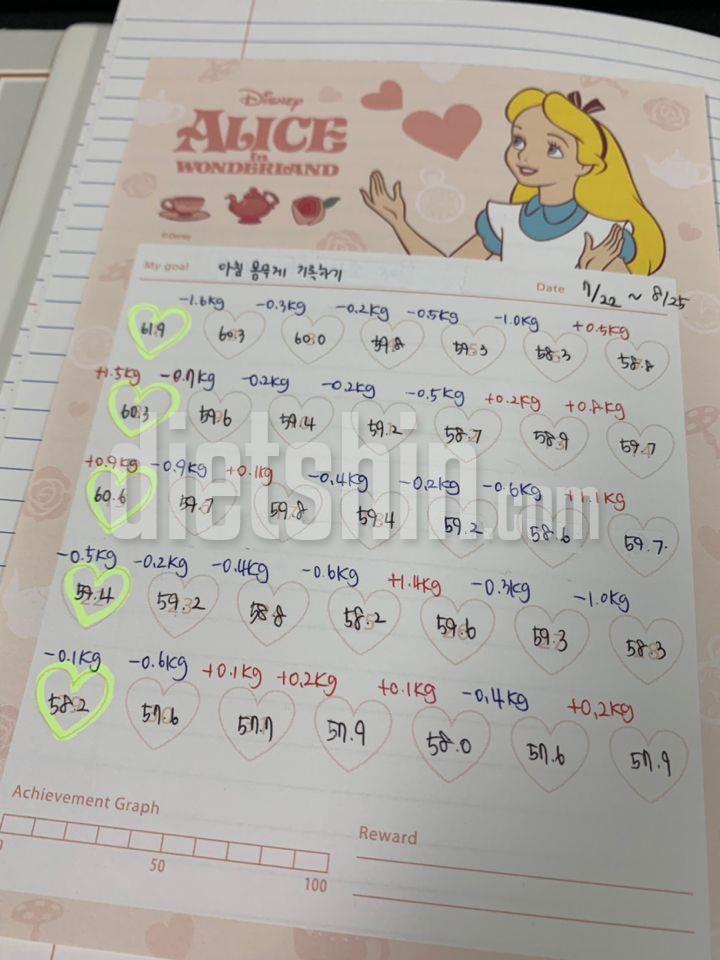 Disney
ALICE
in
WONDERLAND
©Disney
My goal 아침 몸무게 기록하기 Date 7/22 ~ 8/25
-1.6kg -0.3kg -0.2kg -0.5kg -1.0kg +0.5kg
61.9 60.3 60.0 59.8 59.3 58.3 58.8
+1.5kg -0.7kg -0.2kg -0.2kg -0.5kg +0.2kg +0.8kg
60.3 59.6 59.4 59.2 58.7 58.9 59.7
+0.9kg -0.9kg +0.1kg -0.4kg -0.2kg -0.6kg +1.1kg
60.6 59.7 59.8 59.4 59.2 58.6 59.7.
-0.5kg -0.2kg -0.4kg -0.6kg +1.4kg -0.3kg -1.0kg
59.4 59.2 58.8 58.2 59.6 59.3 58.3
-0.1kg -0.6kg +0.1kg +0.2kg +0.1kg -0.4kg +0.2kg
58.2 57.6 57.7 57.9 58.0 57.6 57.9
dietshin.com
Achievement Graph
0 50 100
Reward